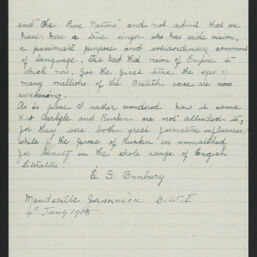 and "The Five Nations" and not admit that we
have here a true singer who has wide vision,
a passionate purpose and extraordinary command
of language. He had that vision of Empire to
which now, for the first time the eyes of
many millions of the British race are now
awakening.
As to prose I rather wondered how it came
that Carlyle and Ruskin are not alluded to,
for they are both great formative influences,
while the prose of Ruskin is unmatched
for beauty in the whole range of English
Literature.
E S Bunbury
Mandeville Jamaica B.W.I
4th